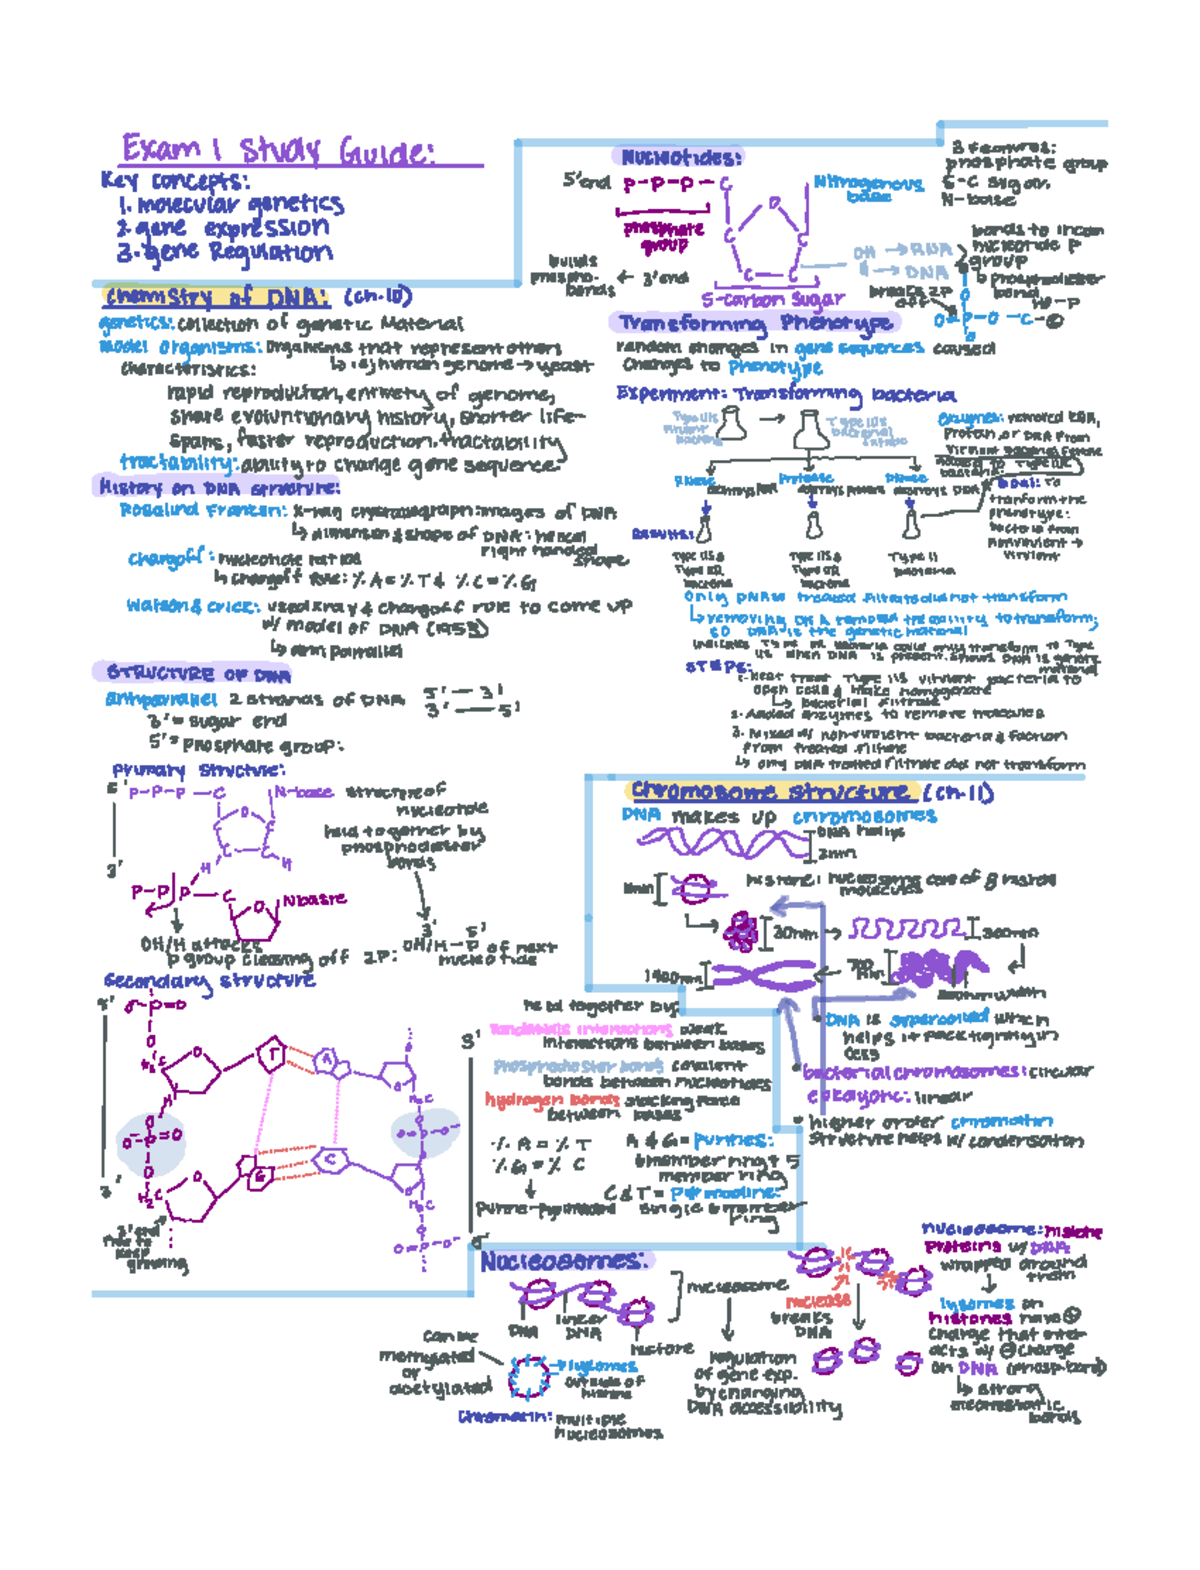 Exam 1 Study Guide:
Key concepts:
1. molecular genetics
2. gene expression
3. gene Regulation
Chemistry of DNA: (ch.10)
genetics: collection of genetic Material
Model organisms: organisms that represent others
human genome → yeast
Characteristics:
rapid reproduction, entirety of genome,
share evoluntionary history, shorter life-
spans, faster reproduction, tractability
tractability: ability to change gene sequence
History on DNA structure:
Rosalind Franclin: X-ray images of DNA
↳ dimension & shape of DNA: helical
right handed
shape
Chargoff: nucleotide ratios
↳ chargoff rule: % A = % T & % C = % G
Watson & Crick: used xray & chargoff rule to come up
w/ model of DNA (1953)
↳ anti parrallel
STRUCTURE OF DNA
antiparrallel 2 strands of DNA 5' — 3'
3' — 5'
3' = sugar end
5' = phosphate group:
Primary Structure:
5' P-P-P — C N-base
structure of
nucleotide
held together by
phosphodiester
bonds
3'
P-P P — C Nbase
OH/H attacks
p group cleaving off 2P:
3' 5'
OH/H — P of next
nucleotide
Secondary structure
Nucleotides:
5' end P-P-P-C
phosphate
group
Nitrogenous
base
3 features:
phosphate group
5-C sugar
N-base
builds
phospho-
bonds ← 3' end
5-carbon sugar
OH → RNA
H → DNA
bonds to incom
nucleotide P
group
phosphodiester
bond
breaks 2P
off
Transforming Phenotype
random changes in gene sequences caused
changes to phenotype
Experiment: Transforming bacteria
Enzymes: removed RNA,
Protein, or DNA from
virulent bacteria
added to Type IIR
bacteria
RNase Protease DNase
destroys RNA destroys protein destroys DNA
Goal: to
tranform the
phenotype:
bacteria from
nonvirulent →
virulent
Results:
Type IIS &
Type IIR
bacteria
Type IIS &
Type IIR
bacteria
Type II
bacteria
Only DNase treated filtrate did not transform
↳ removing DNA removed the ability to transform;
so DNA is the genetic material
STEPS:
1. Heat treat Type IIIS virulent bacteria to
open cells & make homogenate
↳ bacterial filtrate
2. Added enzymes to remove molecules
3. Mixed w/ non-virulent bacteria &
from treated filtrate
↳ only DNA treated filtrate did not transform
Chromosome structure (ch.11)
DNA makes up chromosomes
DNA helix
2nm
histone: nucleosome core of 8 histone
molecules
30nm
300nm
700
nm
1400nm
DNA is supercoiled which
helps it pack tightly in
cells
bacterial chromosomes: circular
eukaryotic: linear
higher order chromatin
structure helps w/ condensation
held together by
interactions weak
interactions between bases
phosphodiester bonds covalent
bonds between nucleotides
hydrogen bonds stacking force
between bases
% A = % T
% G = % C
A & G = purines:
6 member ring + 5
member ring
C & T = pyrimadine:
single 6 member
ring
3'
5'
3' end
free to
keep
growing
Nucleosomes:
DNA
linker
DNA
histone
nucleosome
regulation
of gene exp.
by changing
DNA accessibility
can be
methylated
or
acetylated
lysomes
outside of
histone
Chromatin: multiple
nucleosomes
nuclease
breaks
DNA
nucleosome: histone
proteins w/ DNA
wrapped around
them
lysomes on
histones have ⊕
charge that inter-
acts w/ ⊖ charge
on DNA (phosp. bond)
↳ strong
bonds